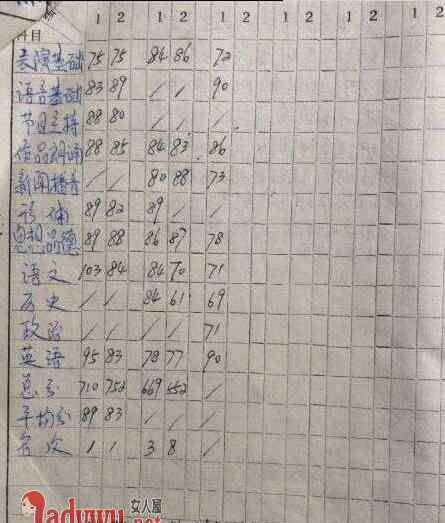 科目 1 2 1 2 1 2 1 2 1 2 1 2
表演基础 75 75 84 86 72
语音基础 83 89 / / 90
节目主持 88 80 / / /
作品朗诵 88 85 84 83 86
新闻播音 / / 80 88 73
89 82 89 / /
思想品德 89 88 86 87 78
语文 103 84 84 70 71
历史 / / 84 61 69
政治 / / / / 71
英语 95 83 78 77 90
总分 710 752 669 552 /
平均分 89 83 / / /
名次 1 1 3 8 /
女人屋